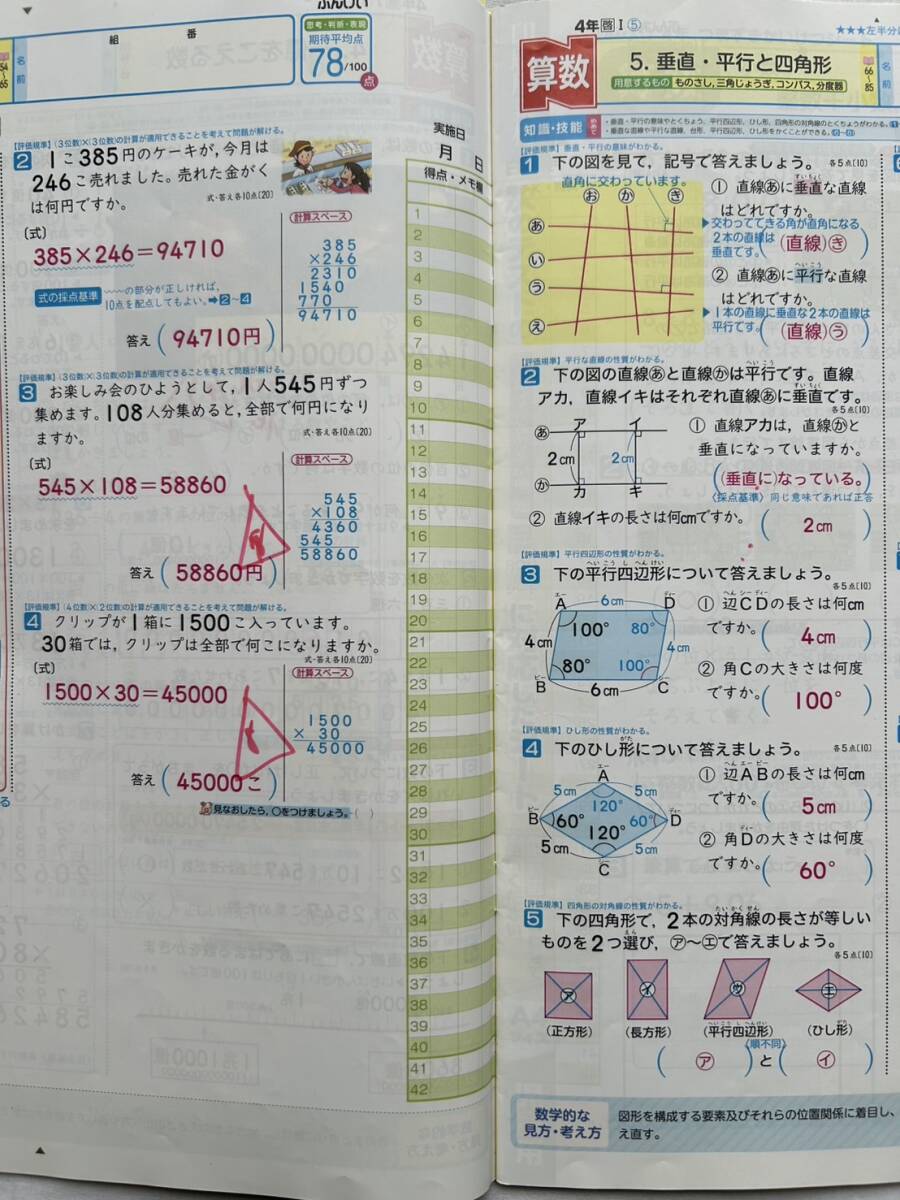 ぶんけい
思考・判断・表現
期待平均点
78/100
点
組 番
名前
54~65
【評価規準】(3位数)×(3位数)の計算が適用できることを考えて問題が解ける。
2 1こ385円のケーキが,今月は
246こ売れました。売れた金がく
は何円ですか。
式・答え各10点(20)
(式)
385×246=94710
計算スペース
385
×246
2310
1540
770
94710
式の採点基準
〰〰の部分が正しければ,
10点を配点してもよい。➡2~4
答え(94710円)
【評価規準】(3位数)×(3位数)の計算が適用できることを考えて問題が解ける。
3 お楽しみ会のひようとして,1人545円ずつ
集めます。108人分集めると,全部で何円になり
ますか。
式・答え各10点(20)
(式)
545×108=58860
計算スペース
545
×108
4360
545
58860
答え(58860円)
【評価規準】(4位数)×(2位数)の計算が適用できることを考えて問題が解ける。
4 クリップが1箱に1500こ入っています。
30箱では,クリップは全部で何こになりますか。
式・答え各10点(20)
(式)
1500×30=45000
計算スペース
1500
× 30
45000
答え(45000こ)
見なおしたら,○をつけましょう。( )
実施日
月 日
得点・メモ欄
1
2
3
4
5
6
7
8
9
10
11
12
13
14
15
16
17
18
19
20
21
22
23
24
25
26
27
28
29
30
31
32
33
34
35
36
37
38
39
40
41
42
4年啓Ⅰ⑤
★★★左半分
算数
5. 垂直・平行と四角形
用意するもの ものさし,三角じょうぎ,コンパス,分度器
66~85
名前
知識・技能
めあて
・垂直・平行の意味やとくちょう,平行四辺形,ひし形,四角形の対角線のとくちょうがわかる。
・垂直な直線や平行な直線,台形,平行四辺形,ひし形をかくことができる。
【評価規準】垂直・平行の意味がわかる。
1 下の図を見て,記号で答えましょう。 各5点(10)
直角に交わっています。
お か き
あ
い
う
え
① 直線あに垂直な直線
はどれですか。
▶交わってできる角が直角になる
2本の直線は
垂直です。
(直線)き
② 直線あに平行な直線
はどれですか。
▶1本の直線に垂直な2本の直線は
平行です。
(直線)う
【評価規準】平行な直線の性質がわかる。
2 下の図の直線あと直線かは平行です。直線
アカ,直線イキはそれぞれ直線あに垂直です。
各5点(10)
あ ア イ
2cm 2cm
か カ キ
① 直線アカは,直線かと
垂直になっていますか。
((垂直に)なっている。)
〈採点基準〉同じ意味であれば正答
② 直線イキの長さは何cmですか。(2cm)
【評価規準】平行四辺形の性質がわかる。
3 下の平行四辺形について答えましょう。
各5点(10)
A 6cm D
100° 80°
4cm 4cm
80° 100°
B 6cm C
① 辺CDの長さは何cm
ですか。(4cm)
② 角Cの大きさは何度
ですか。(100°)
【評価規準】ひし形の性質がわかる。
4 下のひし形について答えましょう。 各5点(10)
A
5cm 5cm
120°
B 60° 60° D
120°
5cm 5cm
C
① 辺ABの長さは何cm
ですか。(5cm)
② 角Dの大きさは何度
ですか。(60°)
【評価規準】四角形の対角線の性質がわかる。
5 下の四角形で,2本の対角線の長さが等しい
ものを2つ選び,㋐~㋓で答えましょう。
各5点(10)
㋐ ㋑ ㋒ ㋓
(正方形) (長方形) (平行四辺形) (ひし形)
〈順不同〉
(㋐)と(㋑)
数学的な
見方・考え方
図形を構成する要素及びそれらの位置関係に着目し,
え直す。